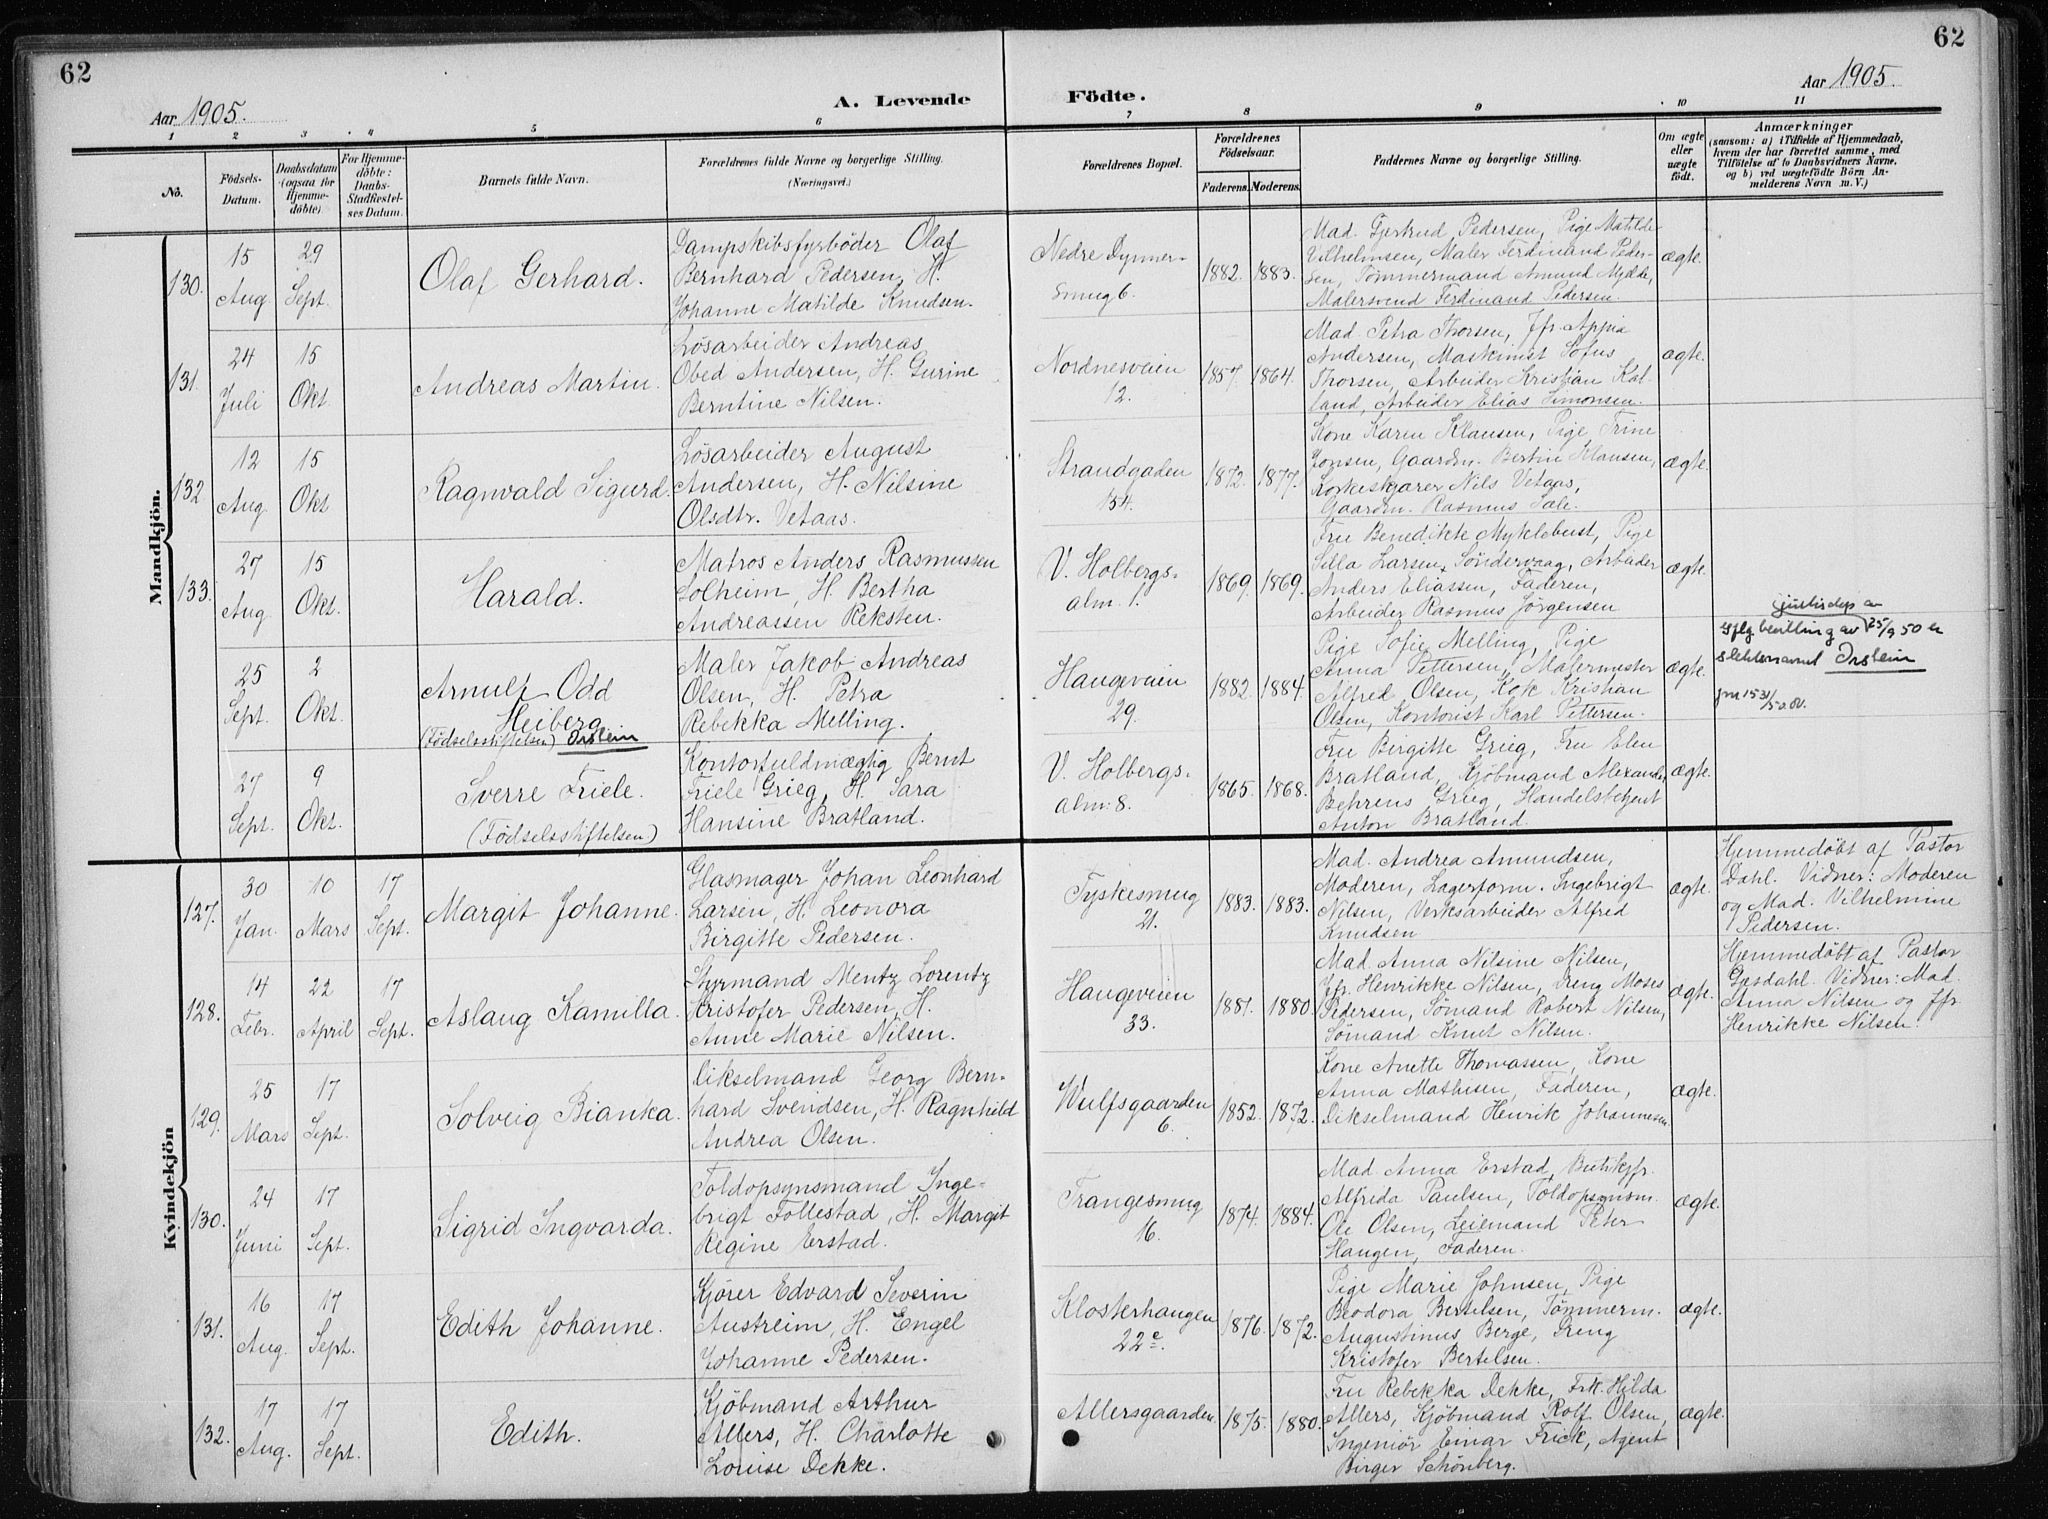 62
62
Aar 1905.
A. Levende
Födte.
Aar 1905.
1 2 3 4 5 6 7 8 9 10 11
No.
Födsels-
Datum.
Daabsdatum
(ogsaa for
Hjemme-
döbte)
For Hjemme-
döbte:
Daabs-
Stadfæstel-
ses Datum.
Barnets fulde Navn.
Forældrenes fulde Navne og borgerlige Stilling.
(Næringsvei.)
Forældrenes Bopæl.
Forældrenes
Födselsaar.
Faderens. Moderens.
Faddernes Navne og borgerlige Stilling.
Om ægte
eller
uægte
födt.
Anmærkninger
(saasom: a) i Tilfælde af Hjemmedaab,
hvem der har forrettet samme, med
Tilföielse af to Daabsvidners Navne.
og b) ved uægtefödte Börn An-
melderens Navn m. V.)
Mandkjön.
130.
15
Aug
29
Sept.
Olaf Gerhard.
Dampskibsfyrböder Olaf
Bernhard Pedersen, H.
Johanne Matilde Knudsen.
Nedre Dynner-
smug 6.
1882. 1883.
Mad. Gjertrud Pedersen, Pige Matilde
Vilhelmsen, Maler Ferdinand Peder-
sen, Tømmermand Amund Mjelde,
Malersvend Ferdinand Pedersen.
ægte.
131.
24
Juli
15
Okt.
Andreas Martin.
Lösarbeider Andreas
Obed Andersen, H. Gurine
Berntine Nilsen.
Nordnesveien
12.
1857. 1864.
Mad. Petra Thorsen, Jfr. Appia
Andersen, Maskinist Sofus
Thorsen, Arbeider Kristian Kal-
land, Arbeider Elias Simonsen.
ægte.
132
12
Aug
15
Okt
Ragnvald Sigurd.
Lösarbeider August
Andersen, H. Nilsine
Olsdtr. Vetaas.
Strandgaden
154.
1872. 1877.
Kone Karen Klausen, Pige Trine
Jonsen, Gaardm. Bertin Klausen,
Korkeskjærer Nils Vetaas,
Gaardm. Rasmus Sale.
ægte.
133.
27
Aug
15
Okt.
Harald.
Matros Anders Rasmussen
Solheim, H. Bertha
Andreassen Reksten.
V. Holbergs-
alm. 1.
1869. 1869.
Fru Benedikte Myklebust, Pige
Silla Larsen, Söndervaag, Arbeider
Anders Eliassen, Faderen,
Arbeider Rasmus Jörgensen
ægte.
25
Sept.
2
Okt.
Arnulf Odd
Heiberg
(Födselsstiftelsen) Orstein
Maler Jakob Andreas
Olsen, H. Petra
Rebekka Melling.
Haugeveien
29.
1882. 1884.
Pige Sofie Melling, Pige
Anna Pettersen, Malermester
Alfred Olsen, Kok Kristian
Olsen, Kontorist Karl Pettersen.
ægte.
justisdep a
Iflg bevilling av 25/9 50 er
slektsnavnet Orstein
27
Sept.
9
Okt.
Sverre Friele.
(Födselsstiftelsen)
Kontorfuldmægtig Bernt
Friele Grieg, H. Sara
Hansine Bratland.
V. Holbergs-
alm: 8.
1865. 1868.
Fru Birgitte Grieg, Fru Elen
Bratland, Kjöbmand Alexander
Behrens Grieg, Handelsbetjent
Anton Bratland.
ægte.
Kvindekjön
127.
30
Jan.
10
Mars
17
Sept.
Margit Johanne.
Glasmager Johan Leonhard
Larsen, H. Leonora
Birgitte Pedersen.
Tyskesmug
21.
1883. 1883.
Mad. Andrea Amundsen,
Moderen, Lagerform. Ingebrigt
Nilsen, Verksarbeider Alfred
Knudsen
ægte.
Hjemmedöbt af Pastor
Dahl. Vidner: Moderen
og Mad. Vilhelmine
Pedersen.
128.
14
Febr.
22
April
17
Sept.
Aslaug Kamilla.
Styrmand Mentz Lorentz
Kristofer Pedersen, H.
Anne Marie Nilsen.
Haugeveien
33.
1881. 1880.
Mad. Anna Nilsine Nilsen,
Jfr. Henrikke Nilsen, Dreng Moses
Pedersen, Sømand Robert Nilsen,
Sömand Knut Nilsen.
ægte.
Hjemmedöbt af Pastor
Gjesdahl. Vidner: Mad.
Anna Nilsen og Jfr.
Henrikke Nilsen.
129.
25
Mars
17
Sept.
Solveig Bianka.
Dikselmand Georg Bern-
hard Svendsen, H. Ragnhild
Andrea Olsen.
Wulfsgaarden
6.
1852. 1872.
Kone Anette Thomassen, Kone
Anna Mathisen, Faderen,
Dikselmand Henrik Johannesen
ægte.
130.
24
Juni
17
Sept.
Sigrid Ingvarda.
Toldopsynsmand Inge-
brigt Follestad, H. Margit
Regine Erstad.
Trangesmug
16.
1874. 1884.
Mad. Anna Erstad, Butikjfr.
Alfrida Paulsen, Toldopsynsm.
Ole Olsen, Leiemand Peter
Haugen, Faderen.
ægte.
131.
16
Aug.
17
Sept.
Edith Johanne.
Kjörer Edvard Severin
Austreim, H. Engel
Johanne Pedersen.
Klosterhaugen
22c.
1876. 1872.
Pige Marie Johnsen, Pige
Beodora Bertelsen, Tömmerm.
Augustinus Berge, Dreng
Kristofer Bertelsen.
ægte.
132.
17
Aug.
17
Sept.
Edith.
Kjöbmand Arthur
Allers, H. Charlotte
Louise Dekke.
Allersgaarden.
1875. 1880.
Fru Rebekka Dekke, Frk. Hilda
Allers, Kjöbmand Rolf Olsen,
Ingeniör Einar Frick, Agent
Birger Schönberg.
ægte.